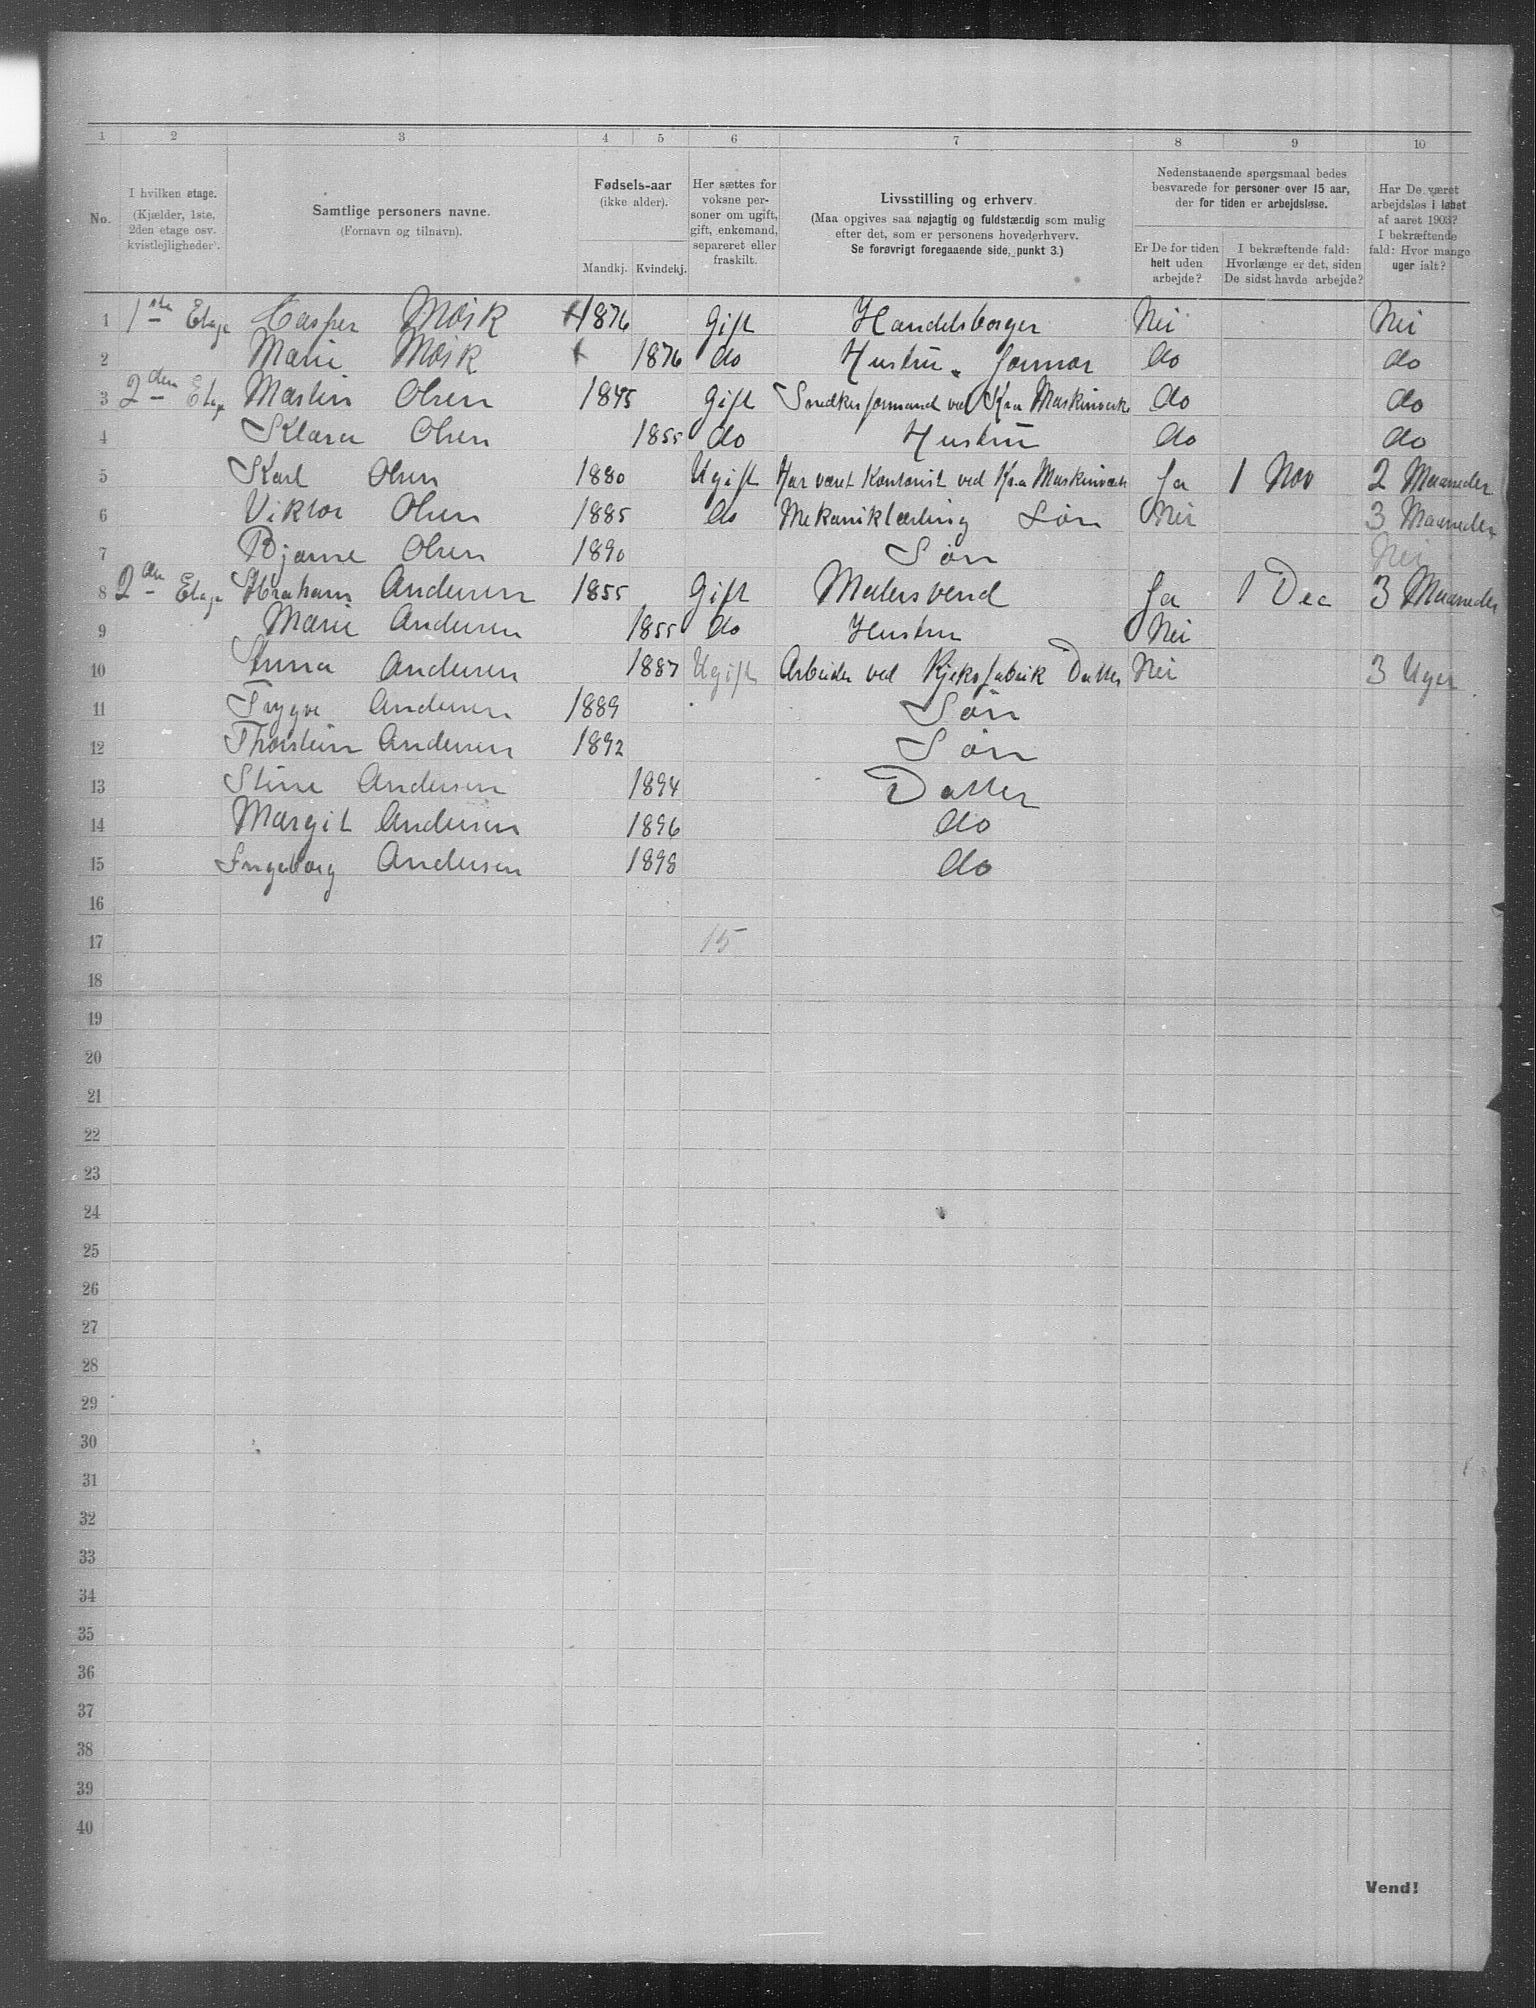 1 2 3 4 5 6 7 8 9 10
No.
I hvilken etage.
(Kjælder, 1ste,
2den etage osv.
kvistlejligheder).
Samtlige personers navne.
(Fornavn og tilnavn).
Fødsels-aar
(ikke alder).
Mandkj. Kvindekj.
Her sættes for
voksne per-
soner om ugift,
gift, enkemand,
separeret eller
fraskilt.
Livsstilling og erhverv.
(Maa opgives saa nøjagtig og fuldstændig som mulig
efter det, som er personens hovederhverv.
Se forøvrigt foregaaende side, punkt 3.)
Nedenstaaende spørgsmaal bedes
besvarede for personer over 15 aar,
der for tiden er arbejdsløse.
Er De for tiden
helt uden
arbejde?
I bekræftende fald:
Hvorlænge er det, siden
De sidst havde arbejde?
Har De været
arbejdsløs i løbet
af aaret 1903?
I bekræftende
fald: Hvor mange
uger ialt?
1 1ste Etage Casper Mørk 1876 Gift Handelsborger Nei Nei
2 Marie Mørk 1876 do Hustru do do
3 2den Etage Martin Olsen 1845 Gift Snedkerformand ved Kra Maskinverk do do
4 Klara Olsen 1855 do Hustru do do
5 Karl Olsen 1880 Ugift Har været Kontorist ved Kra Maskinverk Ja 1 Nov 2 Maaneder
6 Viktor Olsen 1885 do Mekaniklærling Søn Nei 3 Maaneder
7 Bjarne Olsen 1890 Søn Nei
8 2den Etage Abraham Andersen 1855 Gift Malersvend Ja 1 Dec 3 Maaneder
9 Marie Andersen 1855 do Hustru Nei
10 Anna Andersen 1887 Ugift Arbeider ved Kjeksfabrik Datter Nei 3 Uger
11 Trygve Andersen 1889 Søn
12 Thorstein Andersen 1892 Søn
13 Stine Andersen 1894 Datter
14 Margit Andersen 1896 do
15 Ingeborg Andersen 1898 do
16
17 15
18
19
20
21
22
23
24
25
26
27
28
29
30
31
32
33
34
35
36
37
38
39
40
Vend!